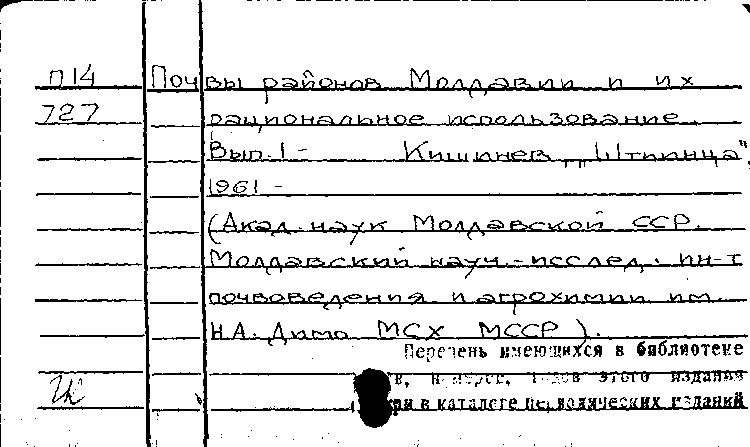 П14 Почвы районов Молдавии и их
727 рациональное использование.
Вып. 1 - Кишинев, „Штиинца",
1961 -
(Акад. наук Молдавской ССР.
Молдавский науч.-исслед. ин-т
почвоведения и агрохимии им.
Н.А. Димо МСХ МССР).
Перечень имеющихся в библиотеке
годов этого издания
в каталоге периодических изданий